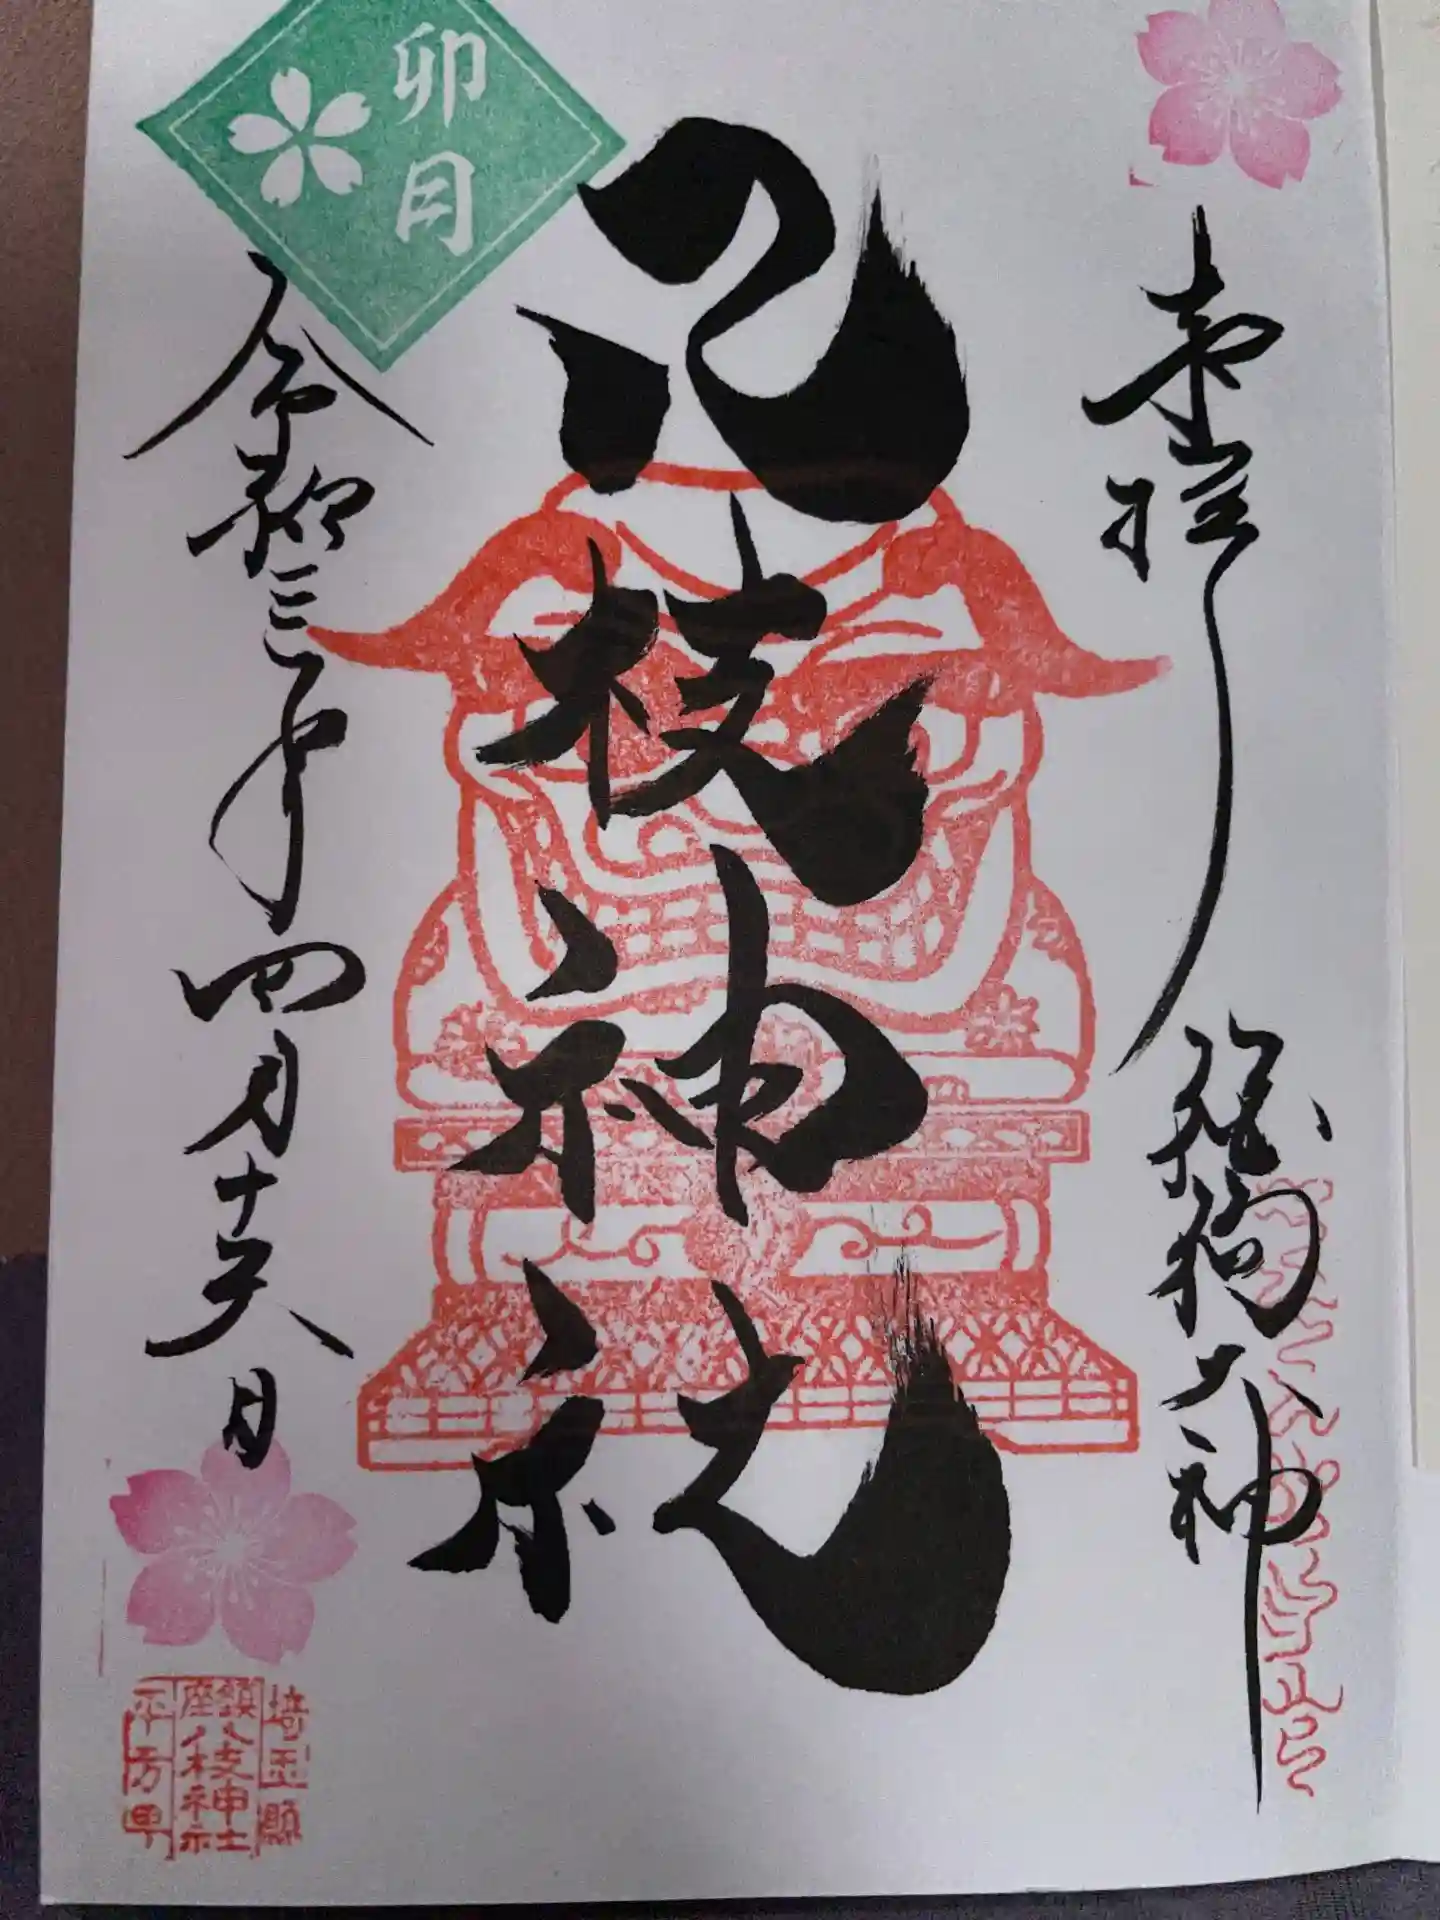 奉拝
狗大神
八枝神社
卯月
令和三年四月十六日
埼玉縣
鎮座
八枝神社
平方